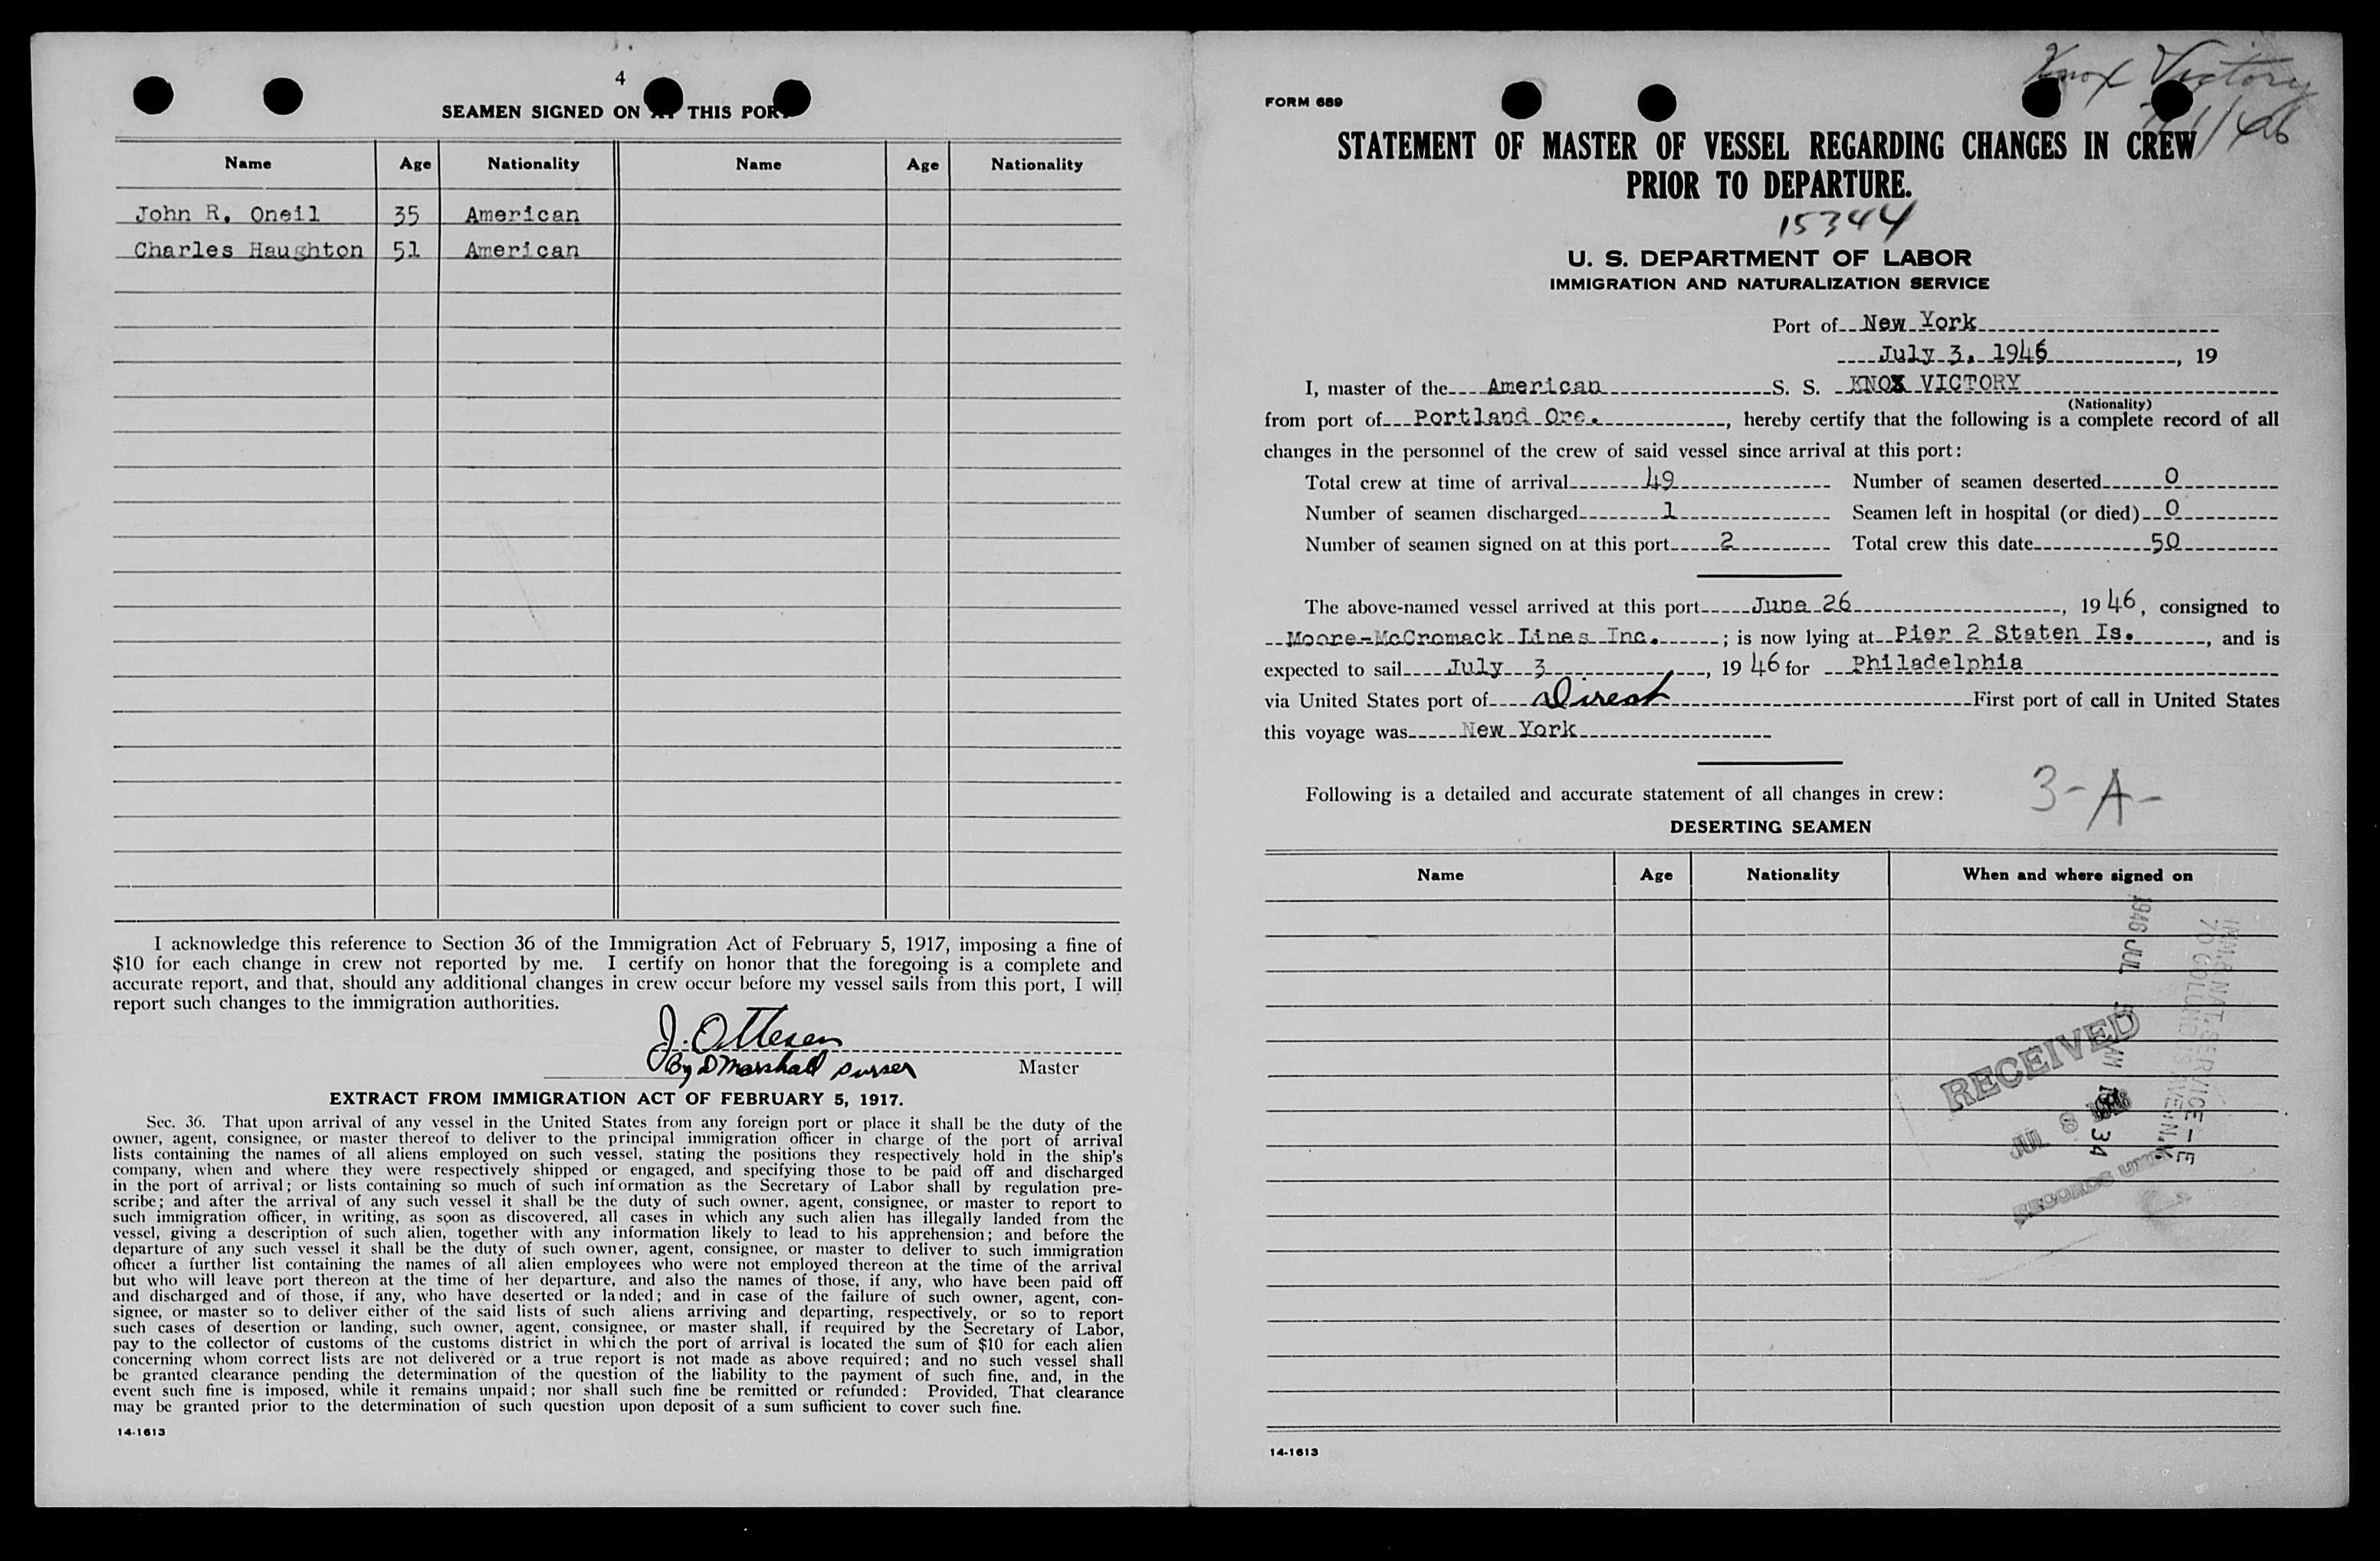 4
SEAMEN SIGNED ON AT THIS PORT
Name Age Nationality Name Age Nationality
John R. Oneil 35 American
Charles Haughton 51 American
I acknowledge this reference to Section 36 of the Immigration Act of February 5, 1917, imposing a fine of
$10 for each change in crew not reported by me. I certify on honor that the foregoing is a complete and
accurate report, and that, should any additional changes in crew occur before my vessel sails from this port, I will
report such changes to the immigration authorities.
J. Ottesen
By D Marshall purser Master
EXTRACT FROM IMMIGRATION ACT OF FEBRUARY 5, 1917.
Sec. 36. That upon arrival of any vessel in the United States from any foreign port or place it shall be the duty of the
owner, agent, consignee, or master thereof to deliver to the principal immigration officer in charge of the port of arrival
lists containing the names of all aliens employed on such vessel, stating the positions they respectively hold in the ship's
company, when and where they were respectively shipped or engaged, and specifying those to be paid off and discharged
in the port of arrival; or lists containing so much of such information as the Secretary of Labor shall by regulation pre-
scribe; and after the arrival of any such vessel it shall be the duty of such owner, agent, consignee, or master to report to
such immigration officer, in writing, as soon as discovered, all cases in which any such alien has illegally landed from the
vessel, giving a description of such alien, together with any information likely to lead to his apprehension; and before the
departure of any such vessel it shall be the duty of such owner, agent, consignee, or master to deliver to such immigration
officer a further list containing the names of all alien employees who were not employed thereon at the time of the arrival
but who will leave port thereon at the time of her departure, and also the names of those, if any, who have been paid off
and discharged and of those, if any, who have deserted or landed; and in case of the failure of such owner, agent, con-
signee, or master so to deliver either of the said lists of such aliens arriving and departing, respectively, or so to report
such cases of desertion or landing, such owner, agent, consignee, or master shall, if required by the Secretary of Labor,
pay to the collector of customs of the customs district in which the port of arrival is located the sum of $10 for each alien
concerning whom correct lists are not delivered or a true report is not made as above required; and no such vessel shall
be granted clearance pending the determination of the question of the liability to the payment of such fine, and, in the
event such fine is imposed, while it remains unpaid; nor shall such fine be remitted or refunded: Provided, That clearance
may be granted prior to the determination of such question upon deposit of a sum sufficient to cover such fine.
14-1613
Knox Victory
FORM 689
STATEMENT OF MASTER OF VESSEL REGARDING CHANGES IN CREW
PRIOR TO DEPARTURE.
15344
U. S. DEPARTMENT OF LABOR
IMMIGRATION AND NATURALIZATION SERVICE
Port of New York
July 3, 1946, 19
I, master of the American S. S. KNOX VICTORY
(Nationality)
from port of Portland Ore., hereby certify that the following is a complete record of all
changes in the personnel of the crew of said vessel since arrival at this port:
Total crew at time of arrival 49 Number of seamen deserted 0
Number of seamen discharged 1 Seamen left in hospital (or died) 0
Number of seamen signed on at this port 2 Total crew this date 50
The above-named vessel arrived at this port June 26, 1946, consigned to
Moore-McCromack Lines Inc.; is now lying at Pier 2 Staten Is., and is
expected to sail July 3, 1946 for Philadelphia
via United States port of Direct First port of call in United States
this voyage was New York
Following is a detailed and accurate statement of all changes in crew:
3-A-
DESERTING SEAMEN
Name Age Nationality When and where signed on
1946 JUL
RECEIVED
JUL 8 1946
RECORDS UNIT
14-1613